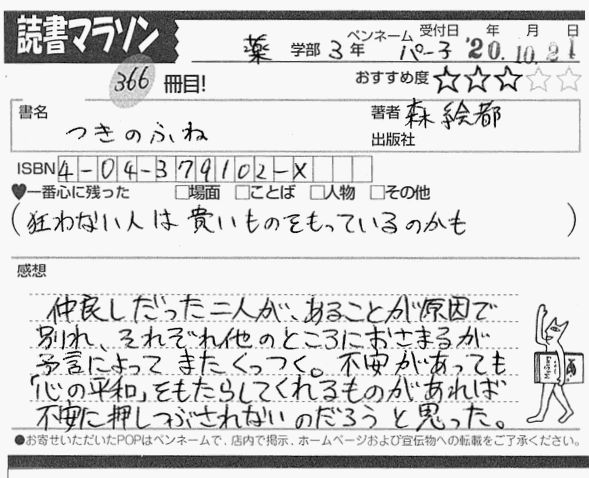 読書マラソン
366 冊目!
薬 学部 3 年 ペンネーム パー子 受付日 '20年 10月 21日
おすすめ度 ☆☆☆☆☆
書名 つきのふね
著者 森 絵都
出版社
ISBN 4-04-379102-X
♥一番心に残った □場面 □ことば □人物 □その他
(狂わない人は貴いものをもっているのかも)
感想
仲良しだった二人が、あることが原因で
別れ、それぞれ他のところにおさまるが
予言によってまたくっつく。不安があっても
「心の平和」をもたらしてくれるものがあれば
不安に押しつぶされないのだろうと思った。
●お寄せいただいたPOPはペンネームで、店内で掲示、ホームページおよび宣伝物への転載をご了承ください。